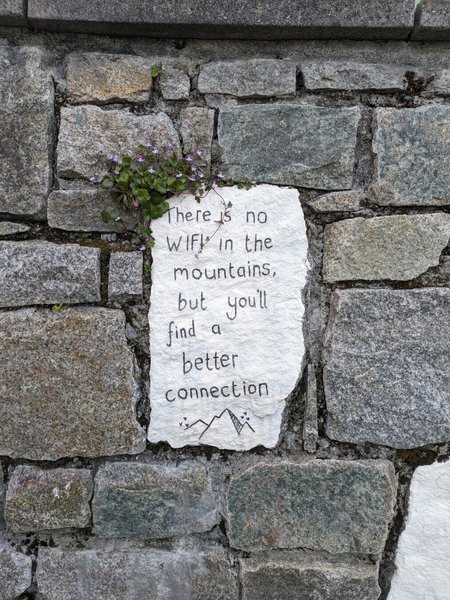 There is no
WIFI in the
mountains,
but you'll
find a
better
connection